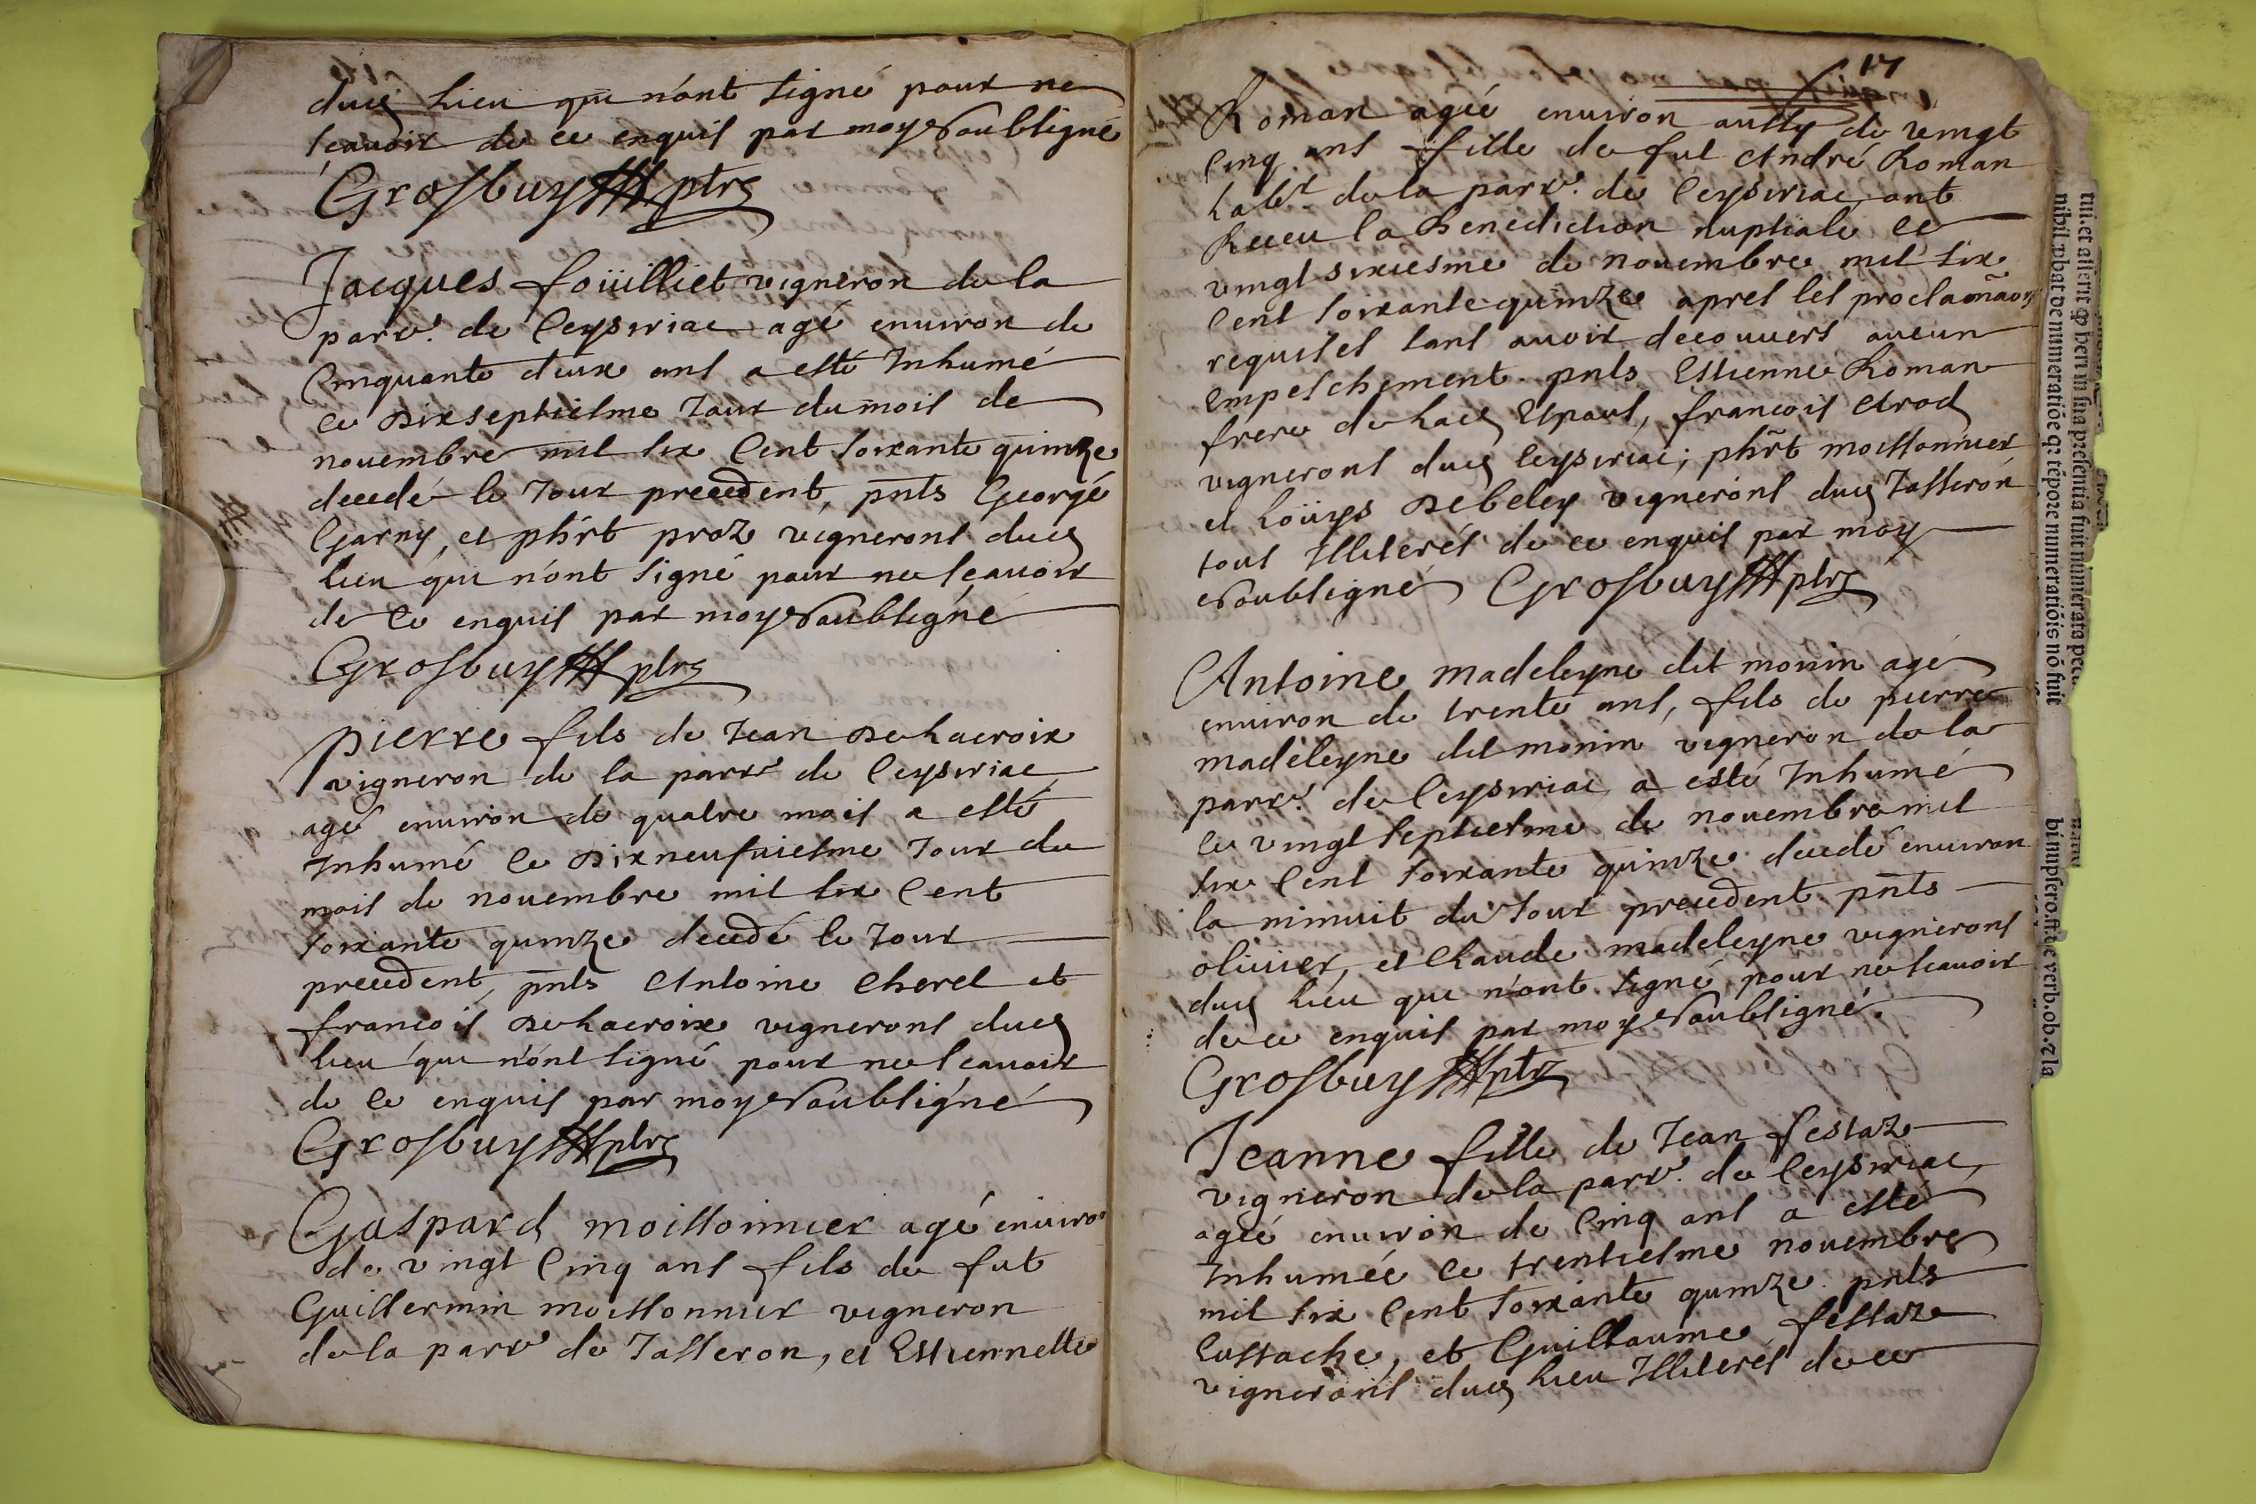 dud lieu qui n'ont signé pour ne
scavoir de ce enquis par moy soubsigné
Grosbuy ptre
Jacques foüilliet vigneron de la
parr. de Ceysiriac agé environ de
Cinquante deux ans a esté Inhumé
ce Dixseptiesme Jour du mois de
novembre mil six Cent soixante quinze
decedé le Jour precedent, pnts George
Garny, et phrt proz vignerons dud
lieu qui n'ont signé pour ne scavoir
de Ce enquis par moy soubsigné
Grosbuy ptre
pierre fils de Jean De Lacroix
vigneron de la parr. de Ceysiriac
agé environ de quatre mois a esté
Inhumé ce Dixneufviesme Jour du
mois de novembre mil six Cent
soixante quinze decedé le Jour
precedent, pnts Antoine Cherel et
francois De Lacroix vignerons dud
lieu qui n'ont signé pour ne scavoir
de Ce enquis par moy soubsigné
Grosbuy ptre
Gaspard moissonnier agé environ
de vingt Cinq ans fils de fut
Guillermin moissonnier vigneron
de la parr. de Jasseron, et Estiennette
17
Roman agée environ aussy de vingt
Cinq ans fille de fut André Roman
Labr. de la parr. de Ceysiriac, ont
Receu la Benediction nuptiale ce
vingt sixiesme de novembre mil six
Cent soixante quinze apres les proclamaons
requises sans avoir decouvers aucun
empeschement. pnts Estienne Roman
frere de Lad Espouse, francois Arod
vignerons dud Ceysiriac; phrt moissonnier
et Louys Debeley vignerons dud Jasseron
tous Illiterés de ce enquis par moy
soubsigné Grosbuy ptre
Antoine madeleyne dit monin agé
environ de trente ans, fils de pierre
madeleyne dit monin vigneron de la
parr. de Ceysiriac a esté Inhumé
ce vingt septiesme de novembre mil
six Cent soixante quinze decedé environ
la minuit du Jour precedent. pnts
olivier, et Claude madeleyne vignerons
dud lieu qui n'ont signé pour ne scavoir
de ce enquis par moy soubsigné.
Grosbuy ptre
Jeanne fille de Jean festaz
vigneron de la parr. de Ceysiriac,
agée environ de Cinq ans a esté
Inhumée ce trentiesme novembre
mil six Cent soixante quinze. pnts
Eustache, et Guillaume festaz
vignerons dud lieu Illiterés de ce